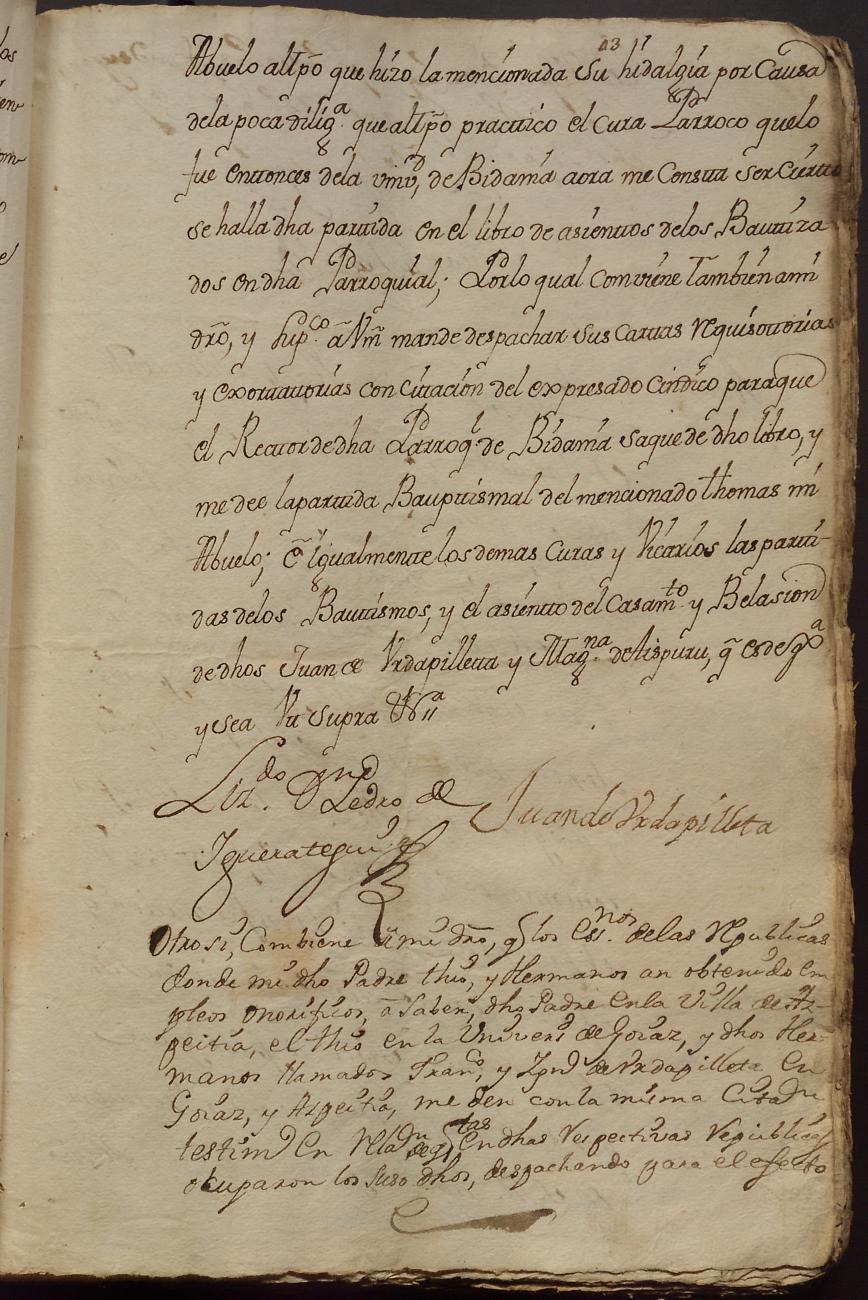 13
Abuelo altpõ que hizo la mencionada Su hidalgia por Causa
dela poca dilig.ª que altpõ practtico el Cura Parroco quelo
fue enttonces dela univ.d de Bidama aora me Constta Ser Ciertto
se halla dha parttida en el libro de asienttos delos Bauttiza
dos en dha Parroquial; Porlo qual comviene Tambien ami
drõ, y Sup.co a Vm̃ mande despachar sus Carttas requisittorias
y exorttattorias con Cittacion del expresado Cindico paraque
el Recttor de dha Parroq.l de Bidama saque de dho libro, y
me dee laparttida Bapttismal del mencionado thomas mi
Abuelo; ẽ Igualmentte los demas Curas y Vicarios las partti-
das delos Bauttismos, y el asientto del Casam.to y Belasion
de dhos Juan de Vrdapilletta y Mag.na de Aispuru, q̃ es de Jª
y sea Vtt supra Vttª
Liz.do Dn Pedro de
Juan de Vrdapilleta
Iguerategui
Otro si, Combiene a mi drõ, q los Ess.nos de las Republicas
donde mi dho Padre thio, y Hermanos an obtenido Em
pleos onorificos, a Saber, dho Padre en la Villa de Az-
peitia, el thio en la Univers.d de Goiaz, y dhos Her-
manos llamados Fran.co, y Ign.o de Vrdapilleta en
Goiaz, y Azpeitia, me den con la misma Citaz.n
testim.o en Relaz.n de q tas en dhas Respectivas Republicas
ocuparon los suso dhos, despachando para el efecto